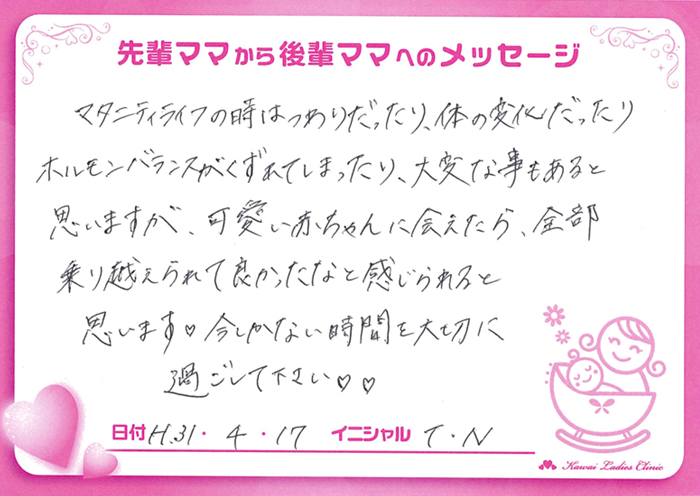 先輩ママから後輩ママへのメッセージ
マタニティライフの時はつわりだったり、体の変化だったり
ホルモンバランスがくずれてしまったり、大変な事もあると
思いますが、可愛い赤ちゃんに会えたら、全部
乗り越えられて良かったなと感じられると
思います♡今しかない時間を大切に
過ごして下さい♡♡
日付 H.31・4・17 イニシャル T・N
Kawai Ladies Clinic